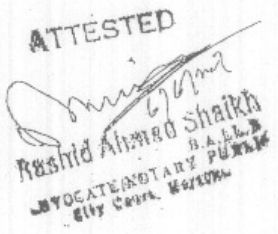 ATTESTED
Rashid Ahmed Shaikh
B.A.LL.B
ADVOCATE/NOTARY PUBLIC
City Court,